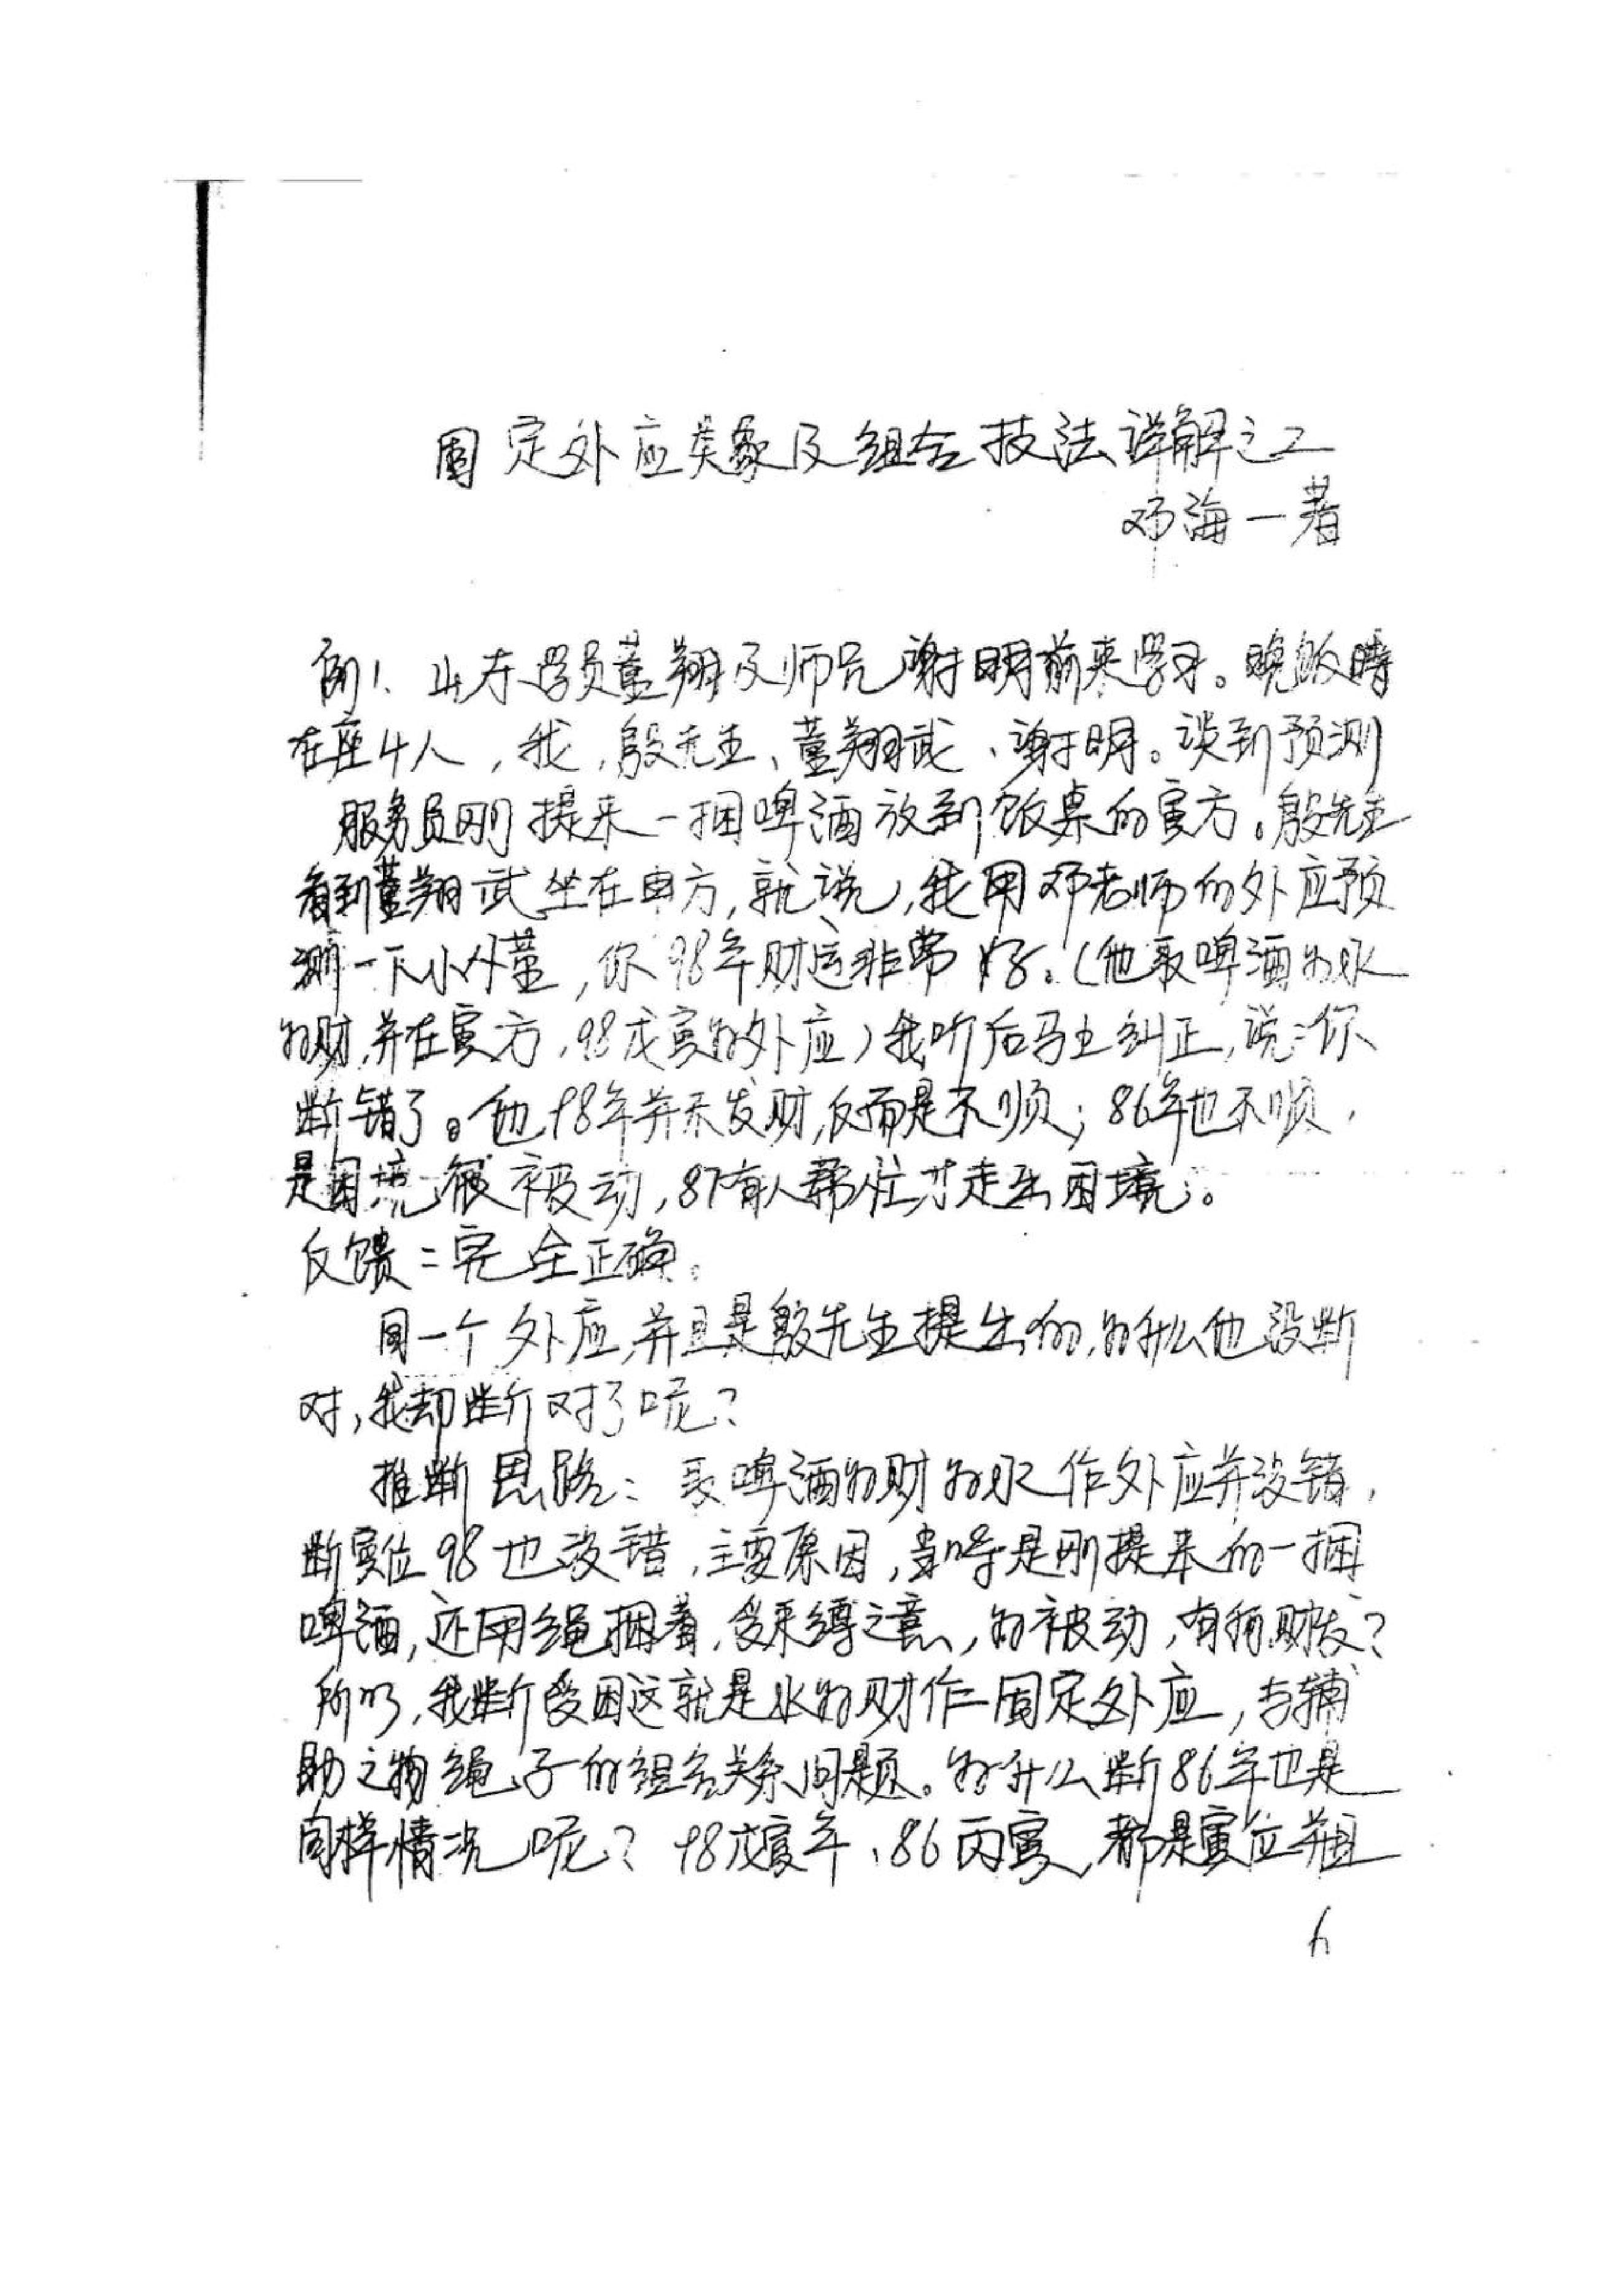 固定外应类象及组合技法详解之二
邓海一著
例1、山东学员董翔及师兄谢明前来学习。晚饭時
在座4人，我，殷先生、董翔武、谢明。谈到预测
服务员刚提来一捆啤酒放到饭桌的寅方。殷先生
看到董翔武坐在申方，就说，我用邓老师的外应预
测一下小董，你98年财运非常好。（他取啤酒为水
为财，并在寅方，98戊寅为外应）我听后马上纠正，说：你
断错了。他98年并未发财，反而是不顺；86年也不顺，
是困境很被动，87有人帮忙才走出困境。
反馈：完全正确。
同一个外应，并且是殷先生提出的，为什么他没断
对，我却断对了呢？
推断思路：取啤酒为财为水作外应并没错，
断寅位98也没错，主要原因，当時是刚提来的一捆
啤酒，还用绳捆着，受束缚之意，为被动，有何财发？
所以，我断受困这就是水为财作固定外应，与辅
助之物绳子的组合关系问题。为什么断86年也是
同样情况呢？98戊寅年、86丙寅，都是寅位并且